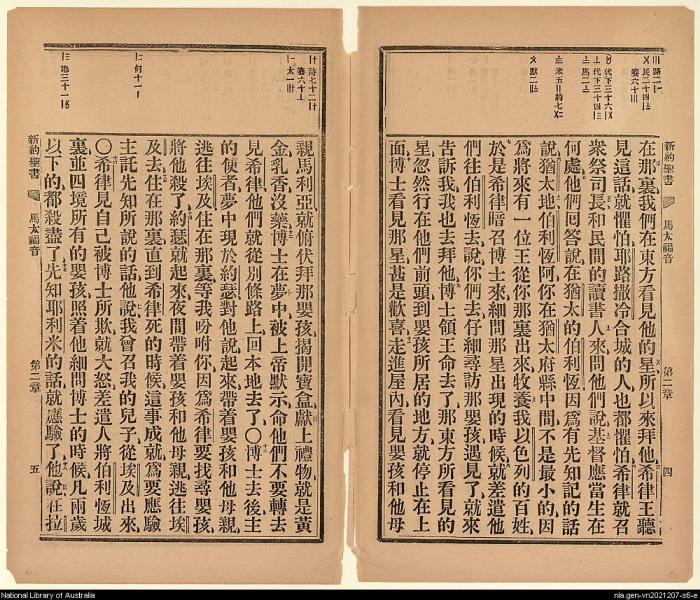 新約聖書
馬太福音
第二章
四
在那裏我們在東方看見他的星所以來拜他希律王聽
見這話就懼怕耶路撒冷合城的人也都懼怕希律就召
衆祭司長和民間的讀書人來問他們說基督應當生在
何處他們回答說在猶太的伯利恆因爲有先知記的話
說猶太地伯利恆阿你在猶太府縣中間不是最小的因
爲將來有一位王從你那裏出來牧養我以色列的百姓
於是希律暗召博士來細問那星出現的時候就差遣他
們往伯利恆去說你們去仔細尋訪那嬰孩遇見了就來
告訴我我也去拜他博士領王命去了那東方所看見的
星忽然行在他們前頭到嬰孩所居的地方就停止在上
面博士看見那星甚是歡喜走進屋內看見嬰孩和他母
親馬利亞就俯伏拜那嬰孩揭開寶盒獻上禮物就是黃
金乳香沒藥博士在夢中被上帝默示命他們不要轉去
見希律他們就從別條路上回本地去了〇博士去後主
的使者夢中現於約瑟對他說起來帶着嬰孩和他母親
逃往埃及住在那裏等我吩咐你因爲希律要找尋嬰孩
將他殺了約瑟就起來夜間帶着嬰孩和他母親逃往埃
及去住在那裏直到希律死的時候這事成就爲要應驗
主託先知所說的話他說我曾召我的兒子從埃及出來
〇希律見自己被博士所欺就大怒差遣人將伯利恆城
裏並四境所有的嬰孩照着他細問博士的時候凡兩歲
以下的都殺盡了先知耶利米的話就應驗了他說在拉
新約聖書
馬太福音
第二章
五
National Library of Australia
nla.gen-vn2021207-s6-e